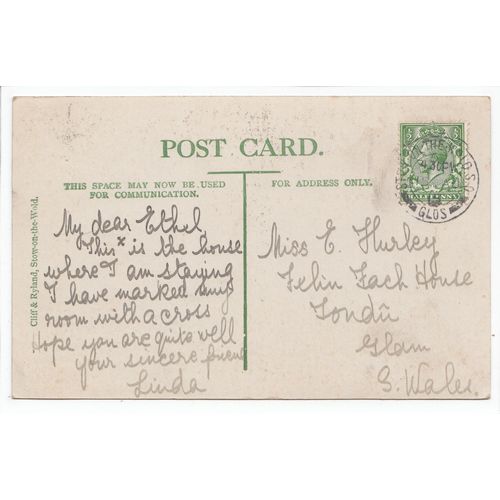 POST CARD.
THIS SPACE MAY NOW BE USED
FOR COMMUNICATION.
FOR ADDRESS ONLY.
Cliff & Ryland, Stow-on-the-Wold.
My dear Ethel
This x is the house
where I am staying
I have marked my
room with a cross
Hope you are quite well
your sincere friend
Linda
Miss E. Hurley
Felin Fach House
Tondû
Glam
S. Wales.
HALFPENNY
GLOS